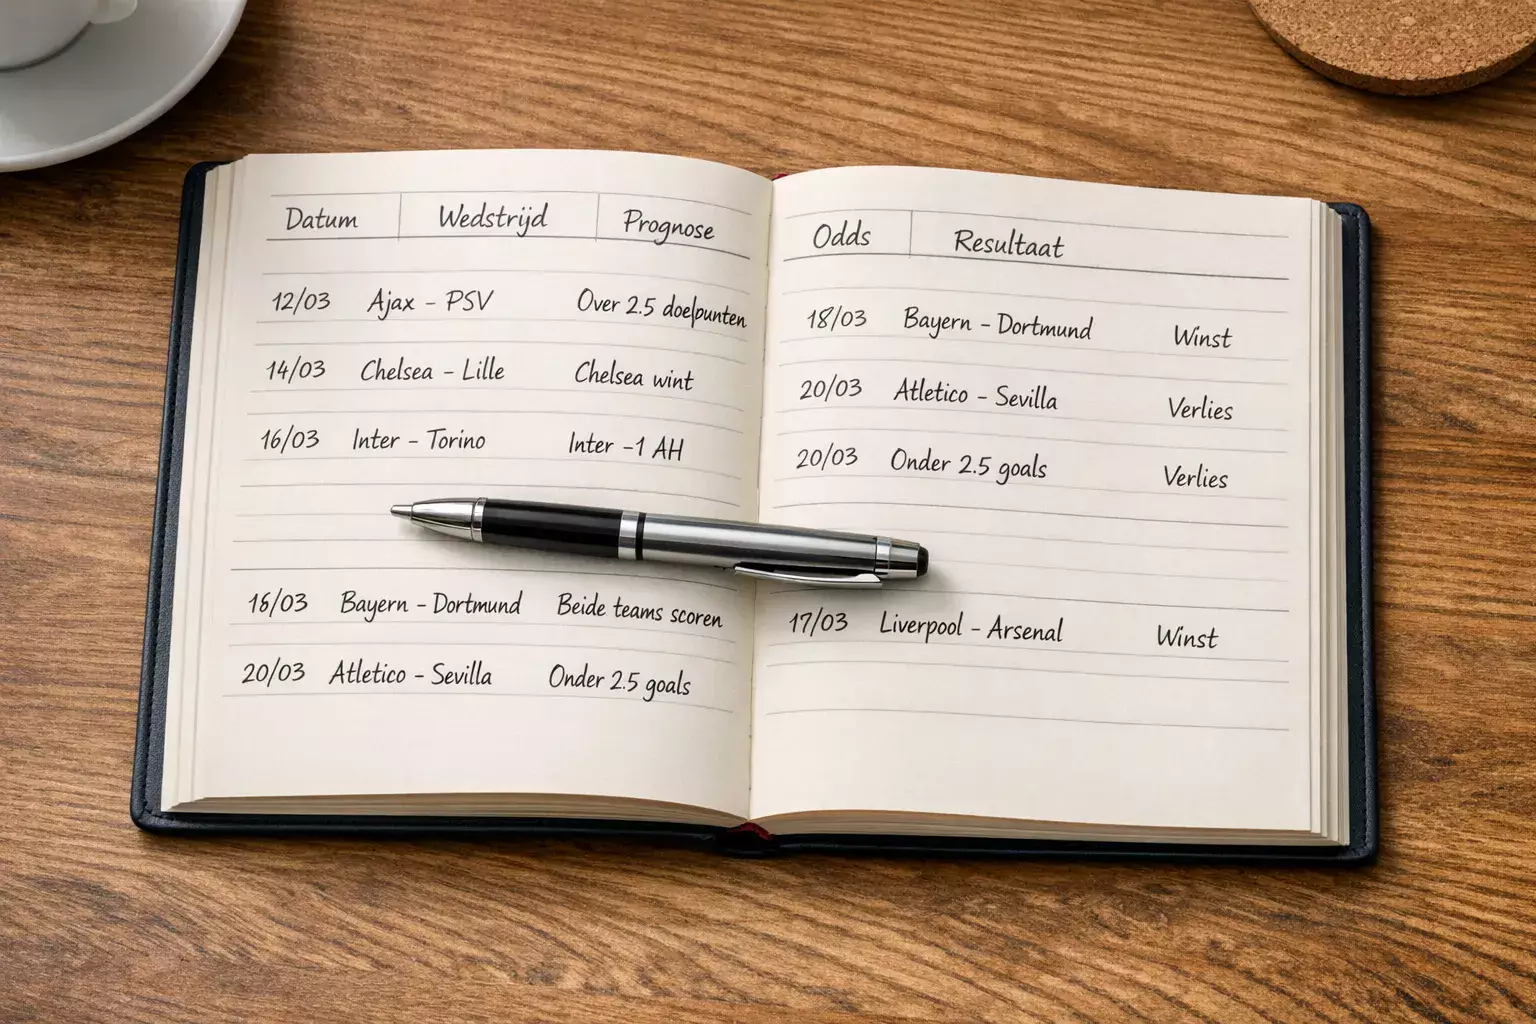 Datum Wedstrijd Prognose
12/03 Ajax - PSV Over 2.5 doelpunten
14/03 Chelsea - Lille Chelsea wint
16/03 Inter - Torino Inter -1 AH
16/03 Bayern - Dortmund Beide teams scoren
20/03 Atletico - Sevilla Onder 2.5 goals
Odds Resultaat
18/03 Bayern - Dortmund Winst
20/03 Atletico - Sevilla Verlies
20/03 Onder 2.5 goals Verlies
17/03 Liverpool - Arsenal Winst